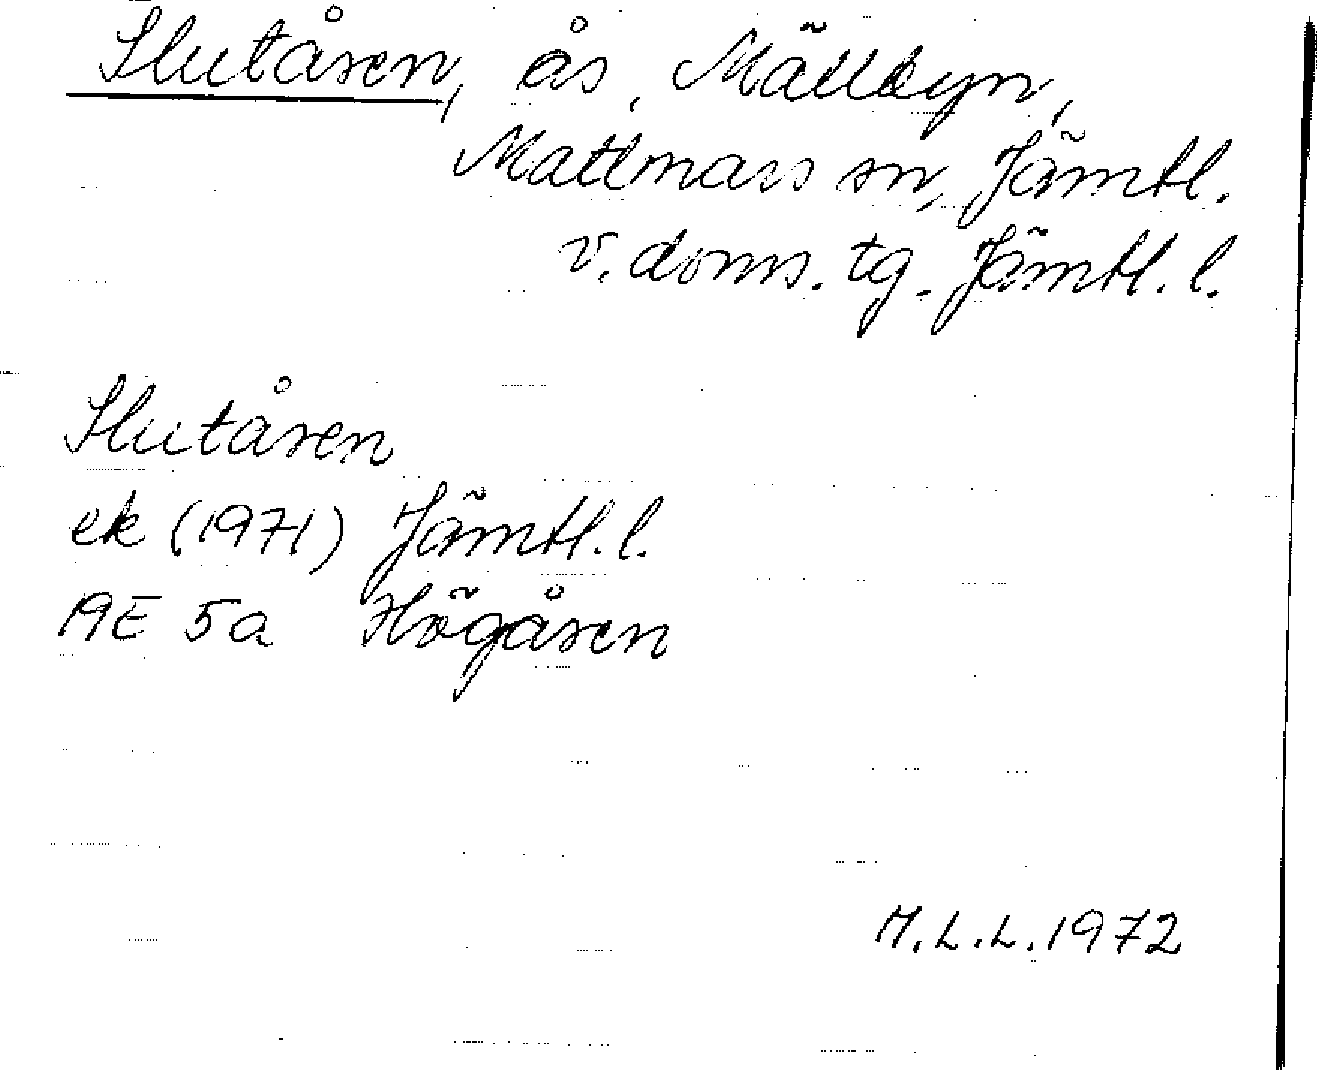 Slutåsen, ås, Mällbyn,
Mattmars sn, Jämtl.
v. doms. tg. Jämtl. l.
Slutåsen
ek (1971) Jämtl. l.
19E 5a Högåsen
M.L.L. 1972